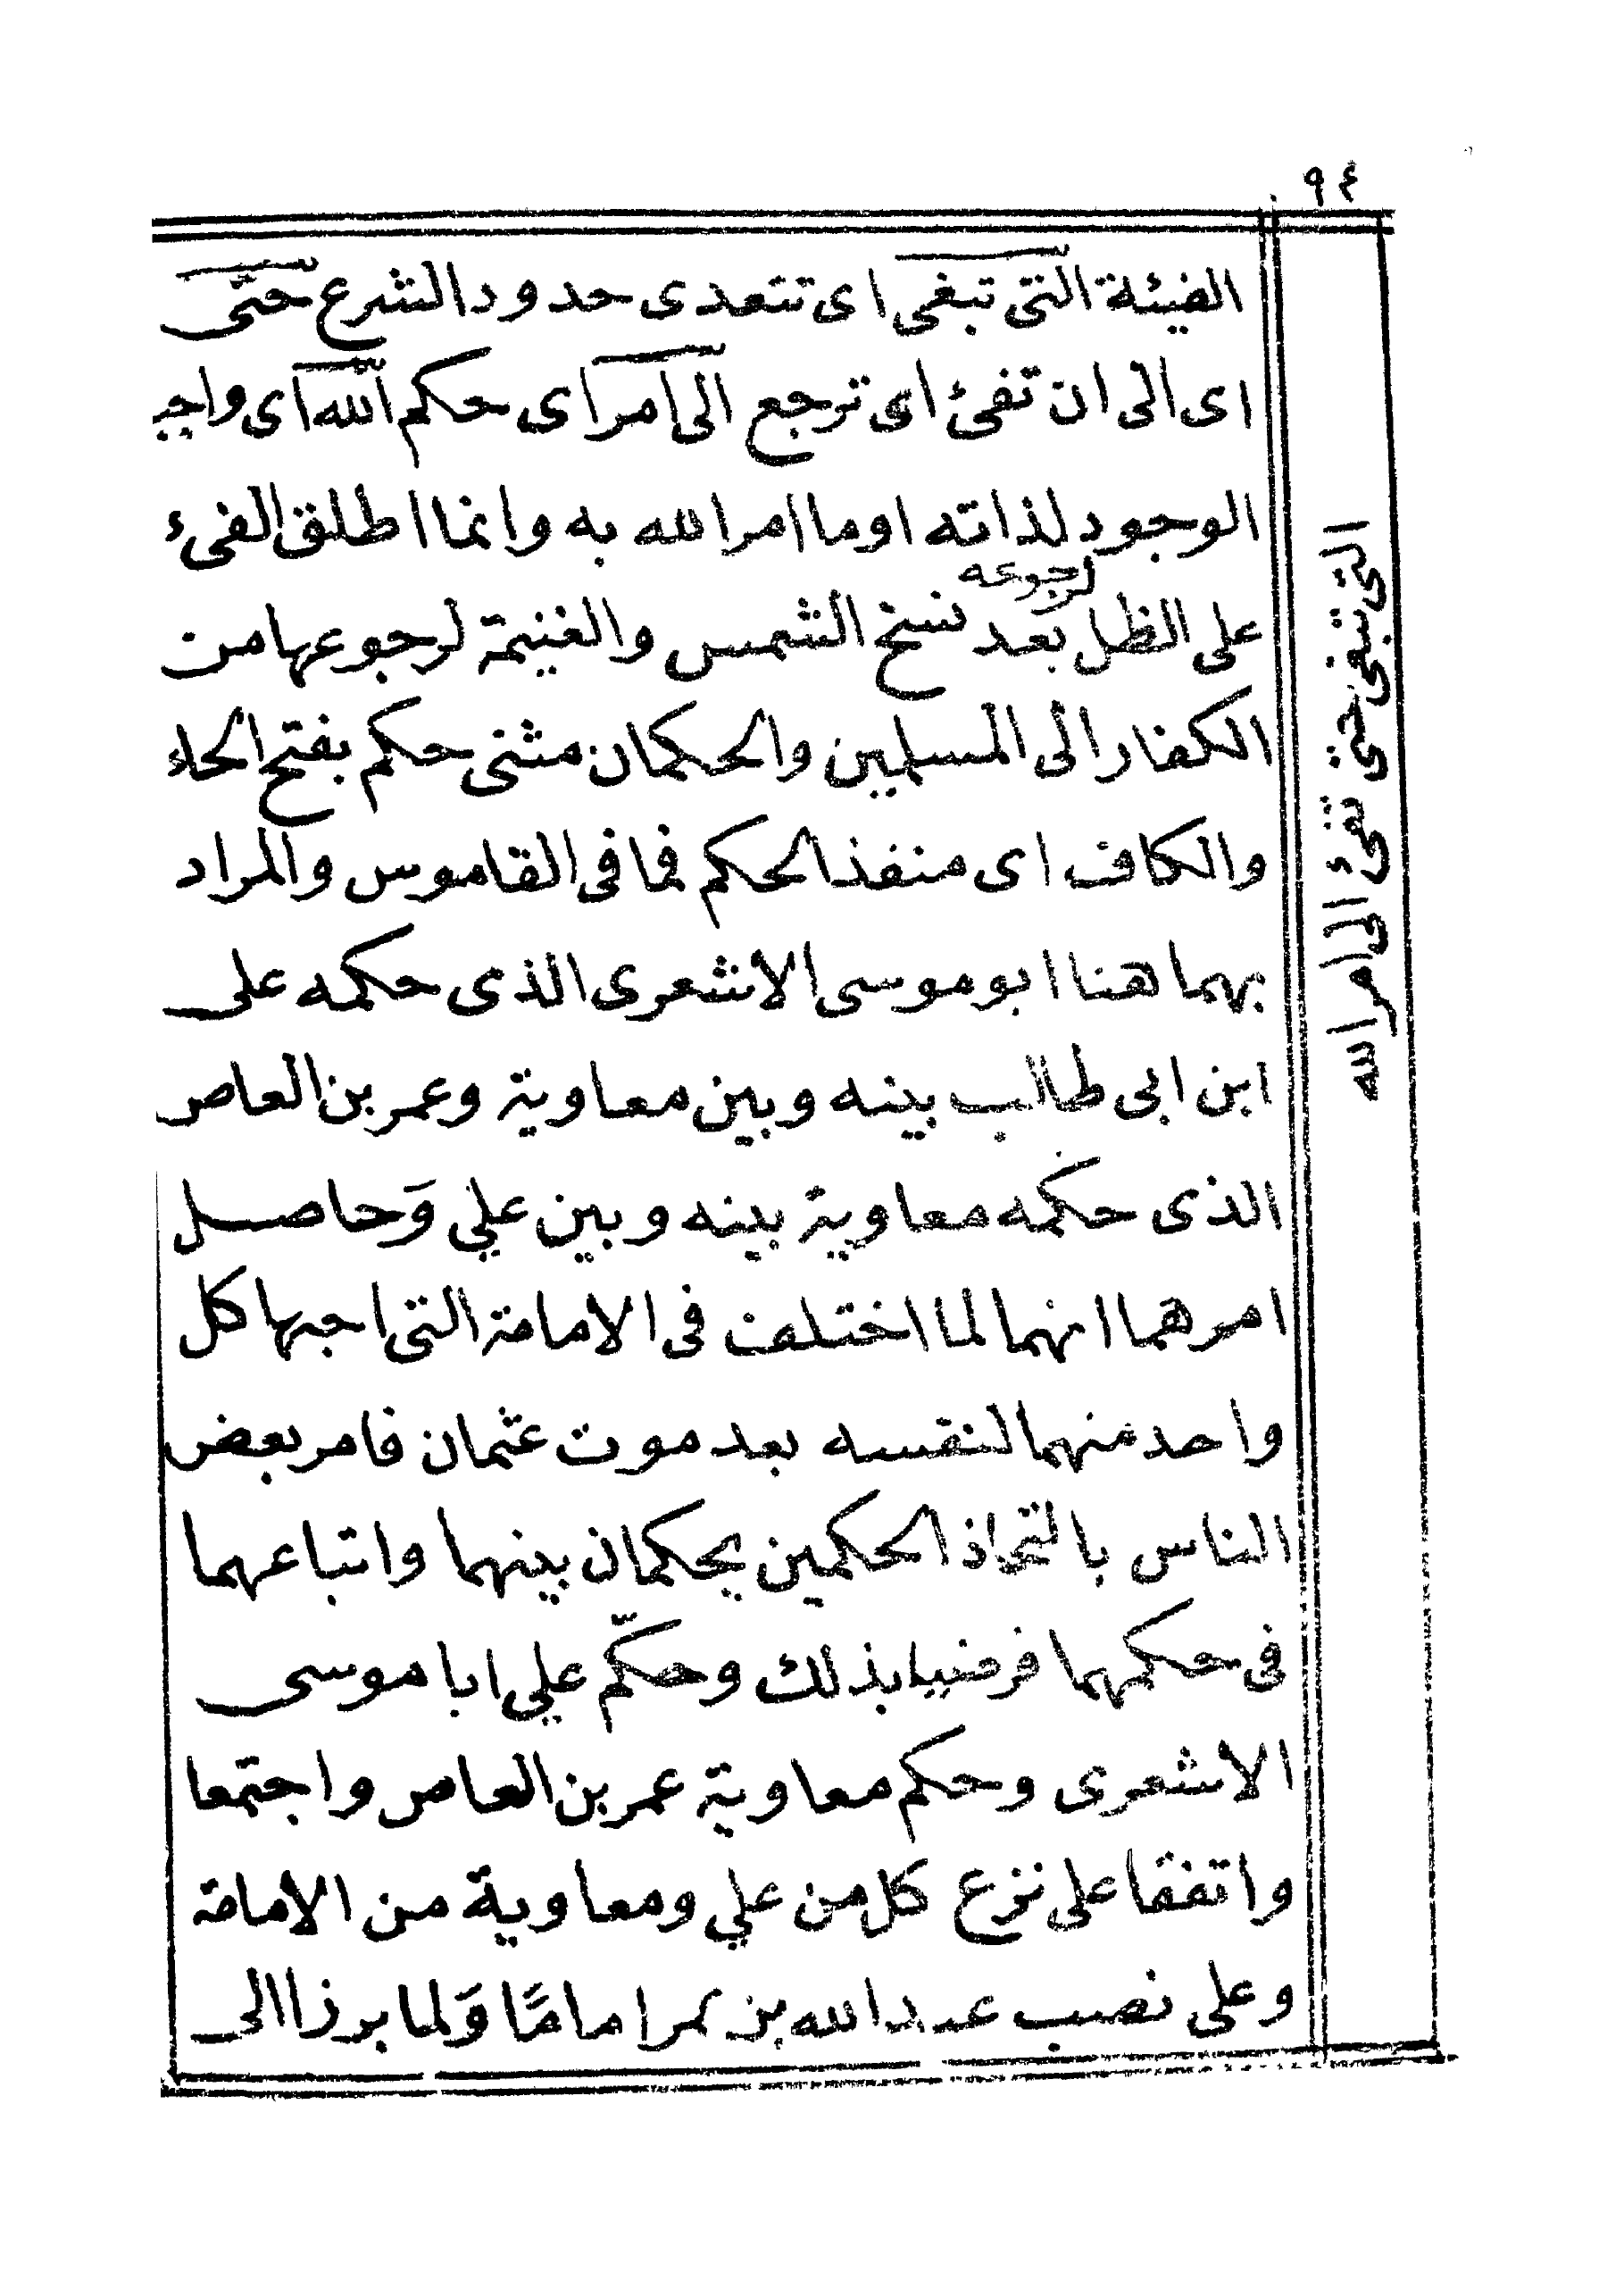 ٩٤
الفيئة التى تبغى اى تتعدى حدود الشرع حتّى
اى الى ان تفئ اى ترجع الى امر اى حكم الله اى واجب
الوجود لذاته او ما امر الله به وانما اطلق الفىء
لرجوعه
على الظل بعد نسخ الشمس والغنيمة لرجوعها من
الكفار الى المسلمين والحكمان مثنى حكم بفتح الحاء
والكاف اى منفذ الحكم فما فى القاموس والمراد
بهما هنا ابو موسى الاشعرى الذى حكمه على
ابن ابى طالب بينه وبين معاوية وعمر بن العاص
الذى حكمه معاوية بينه وبين علي وَحاصل
امرهما انهما لما اختلف فى الامامة التى احبها كل
واحد منهما لنفسه بعد موت عثمان فامر بعض
الناس بالتخاذ الحكمين يحكمان بينهما واتباعهما
فى حكمهما فرضيا بذلك وحكّم علي ابا موسى
الاشعرى وحكم معاوية عمر بن العاص واجتمعا
واتفقا على نزع كل من علي ومعاوية من الامامة
وعلى نصب عبد الله بن عمر امامًا وَلما برزا الى
التى تبغى حتى تفئ الى امر الله